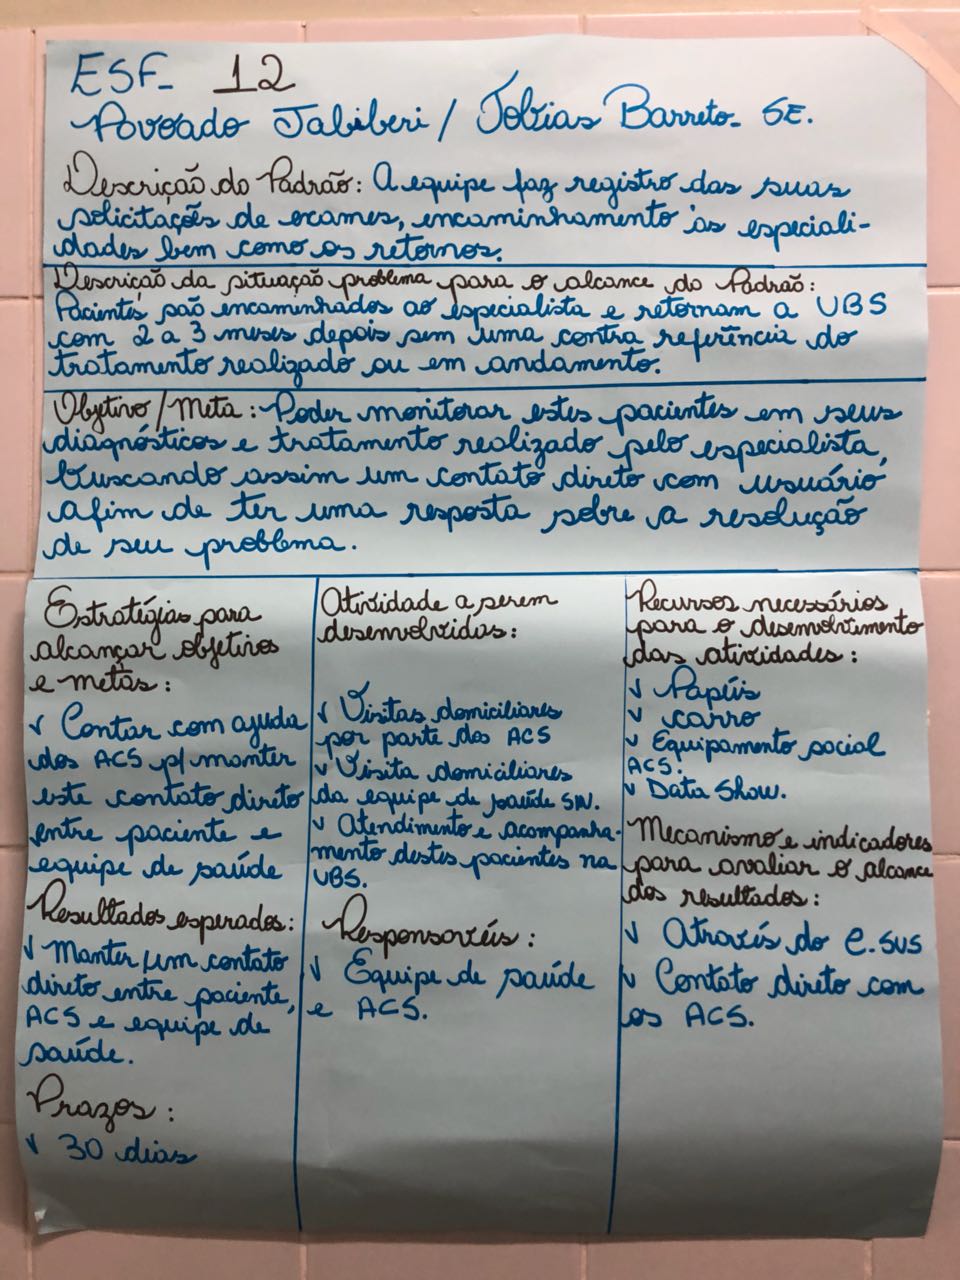 ESF- 12
Povoado Jabiberi / Tobias Barreto- SE.
Descrição do Padrão: A equipe faz registro das suas
solicitações de exames, encaminhamento às especiali-
dades bem como os retornos.
Descrição da situação problema para o alcance do Padrão:
Pacientes são encaminhados ao especialista e retornam a UBS
com 2 a 3 meses depois sem uma contra referência do
tratamento realizado ou em andamento.
Objetivo/Meta: Poder monitorar estes pacientes em seus
diagnósticos e tratamento realizado pelo especialista,
buscando assim um contato direto com usuário
afim de ter uma resposta sobre a resolução
de seu problema.
Estratégias para
alcançar objetivos
e metas:
✓ Contar com ajuda
dos ACS p/ manter
este contato direto
entre paciente e
equipe de saúde
Resultados esperados:
✓ Manter um contato
direto entre paciente,
ACS e equipe de
saúde.
Prazos:
✓ 30 dias
Atividade a serem
desenvolvidas:
✓ Visitas domiciliares
por parte dos ACS
✓ Visita domiciliares
da equipe de saúde SN.
✓ Atendimento e acompanha-
mento destes pacientes na
UBS.
Responsavéis:
✓ Equipe de saúde
e ACS.
Recursos necessários
para o desenvolvimento
das atividades:
✓ Papéis
✓ carro
✓ Equipamento social
ACS.
✓ Data Show.
Mecanismo e indicadores
para avaliar o alcance
dos resultados:
✓ Através do e.SUS
✓ Contato direto com
os ACS.